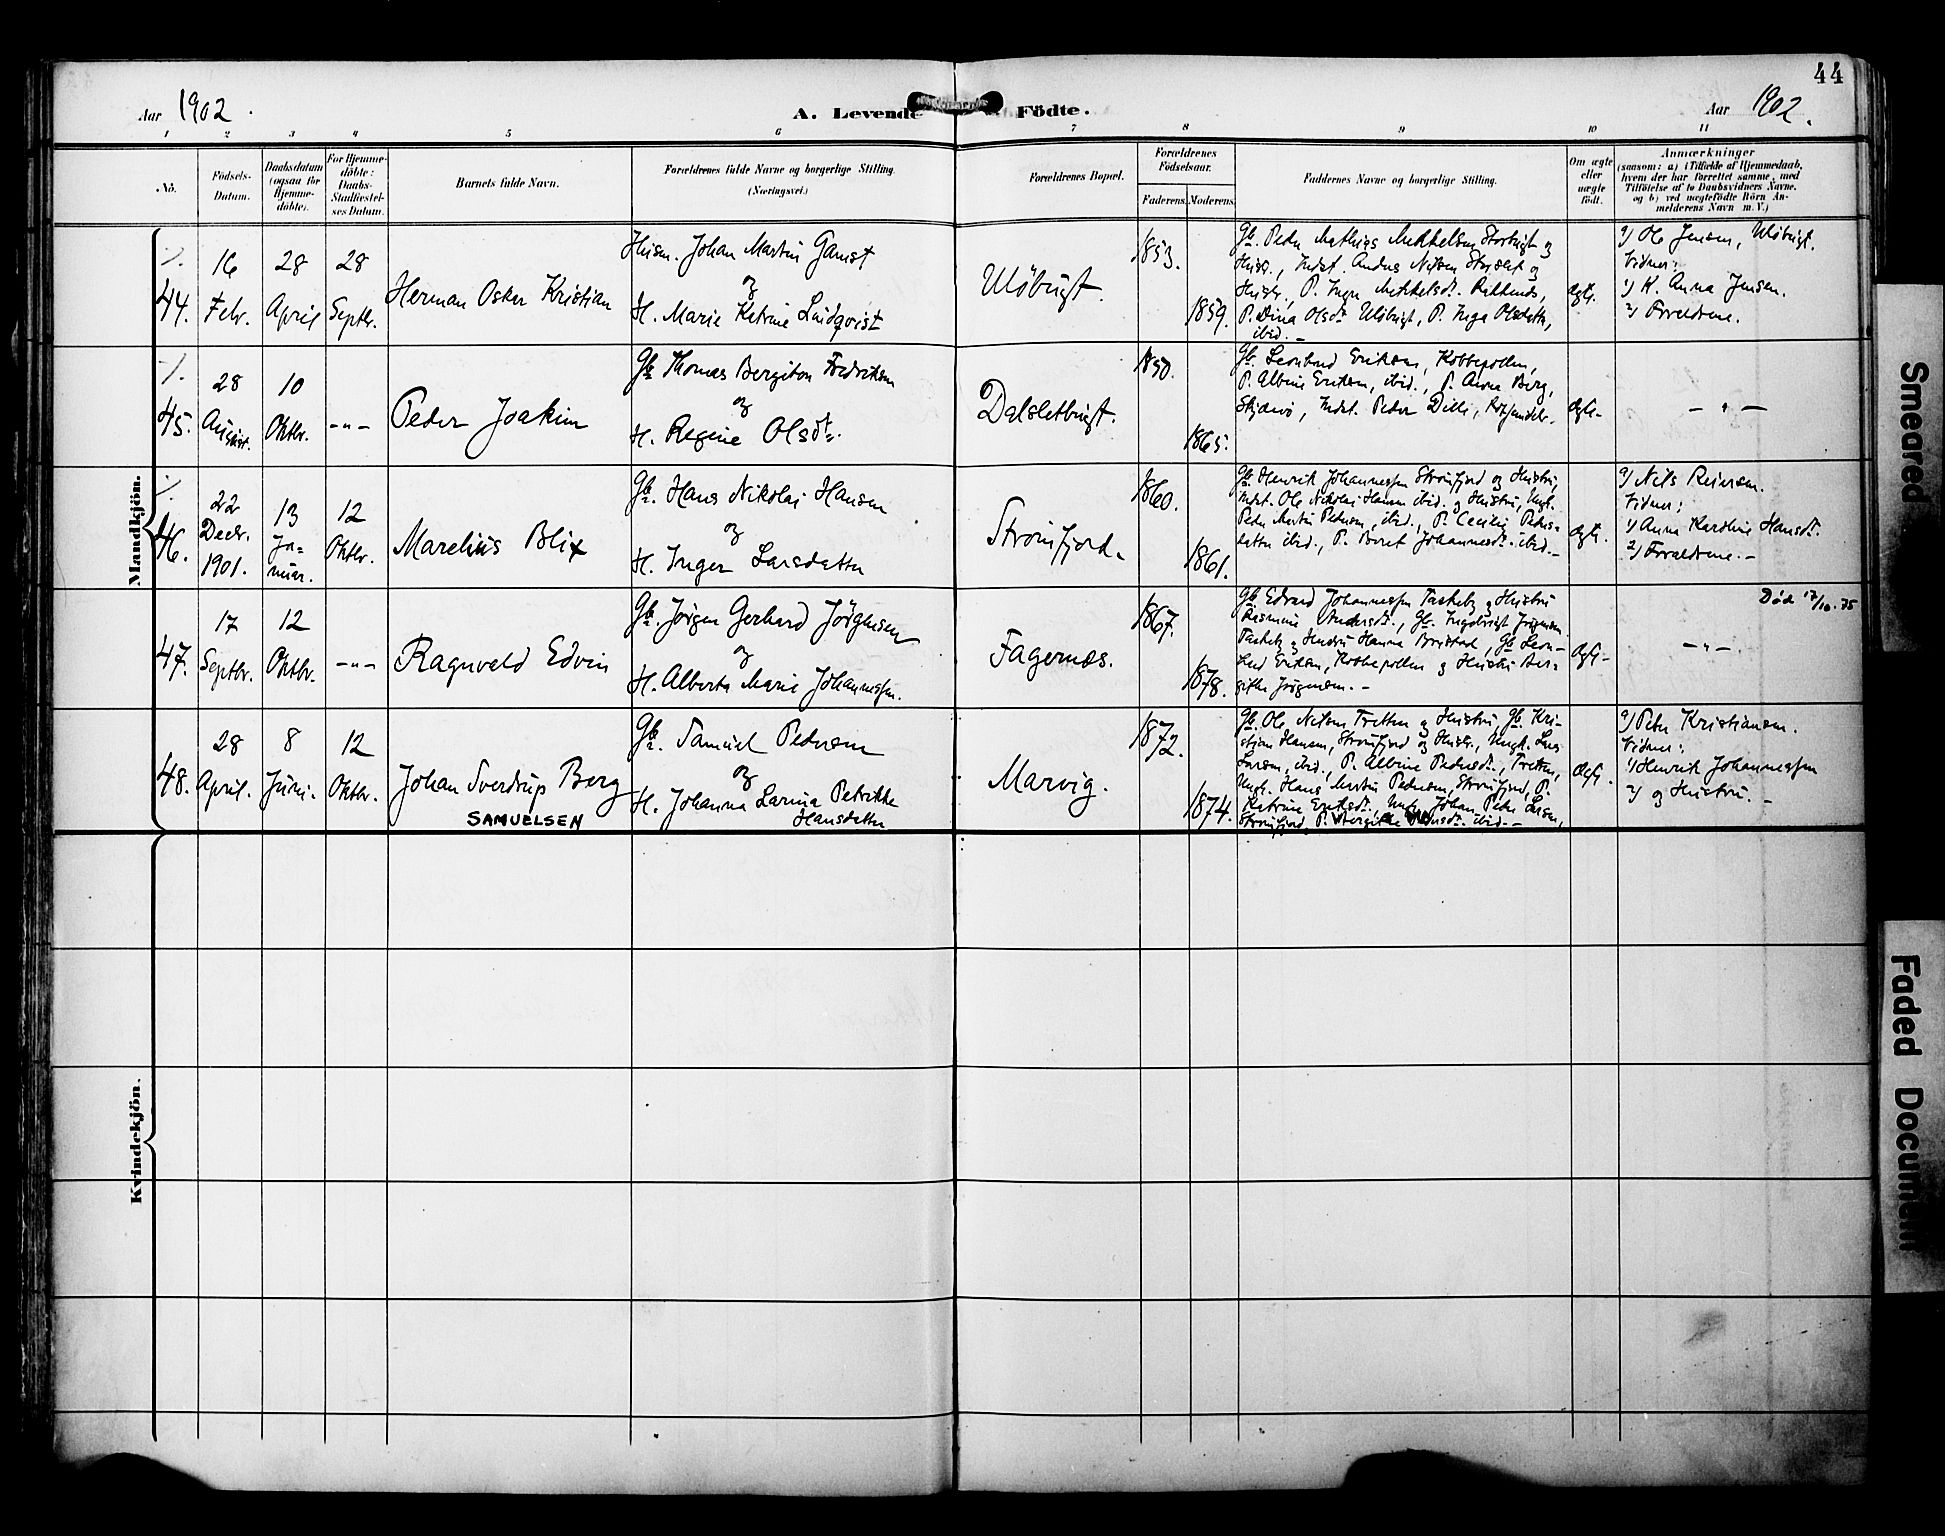 44
Aar 1902.
A. Levende Födte.
Aar 1902.
1 2 3 4 5 6 7 8 9 10 11
No.
Födsels-
Datum.
Daabsdatum
(ogsaa for
Hjemme-
döbte).
For Hjemme-
döbte:
Daabs-
Stadfæstel-
ses Datum.
Barnets fulde Navn.
Forældrenes fulde Navne og borgerlige Stilling.
(Næringsvei.)
Forældrenes Bopæl.
Forældrenes
Födselsaar.
Faderens. Moderens.
Faddernes Navne og borgerlige Stilling.
Om ægte
eller
uægte
födt.
Anmærkninger
(saasom: a) i Tilfælde af Hjemmedaab,
hvem der har forrettet samme, med
Tilföielse af to Daabsvidners Navne.
og b) ved uægtefödte Börn An-
melderens Navn m. V.)
Mandkjön.
44.
16
Febr.
28
April
28
Septbr.
Herman Oskar Kristian
Husm. Johan Martin Gamst
og
H. Marie Katrine Lindqvist
Uløbugt.
1853.
1859.
Gb. Peder Mathias Mikkelsen Storbugt og
Hustr., Indst. Anders Nilsen Storslet og
Hustr., P. Inger Mikkelsdt.
P. Dina Olsdt. Uløbugt, P. Inga Olsdatter,
ibid. –
Ægte.
a) Ole Jensen, Uløbugt.
Vidner:
1) K. Anna Jensen.
2) Forældrene.
45.
28
August.
10
Oktbr.
-"-
Peder Joakim
Gb. Thomas Bergiton Fredriksen
og
H. Regine Olsdt.
Dalsletbugt.
1850.
1865.
Gb. Leonhard Eriksen, Kobbepollen,
P. Albine Eriksen, ibid., P. Anna Berg,
Skjærvø, Indst. Peder Dilli,
Ægte.
– " –
46.
22
Decbr.
1901.
13
Ja-
nuar.
12
Oktbr.
Marelius Blix
Gb. Hans Nikolai Hansen
og
H. Inger Larsdatter
Strømfjord.
1860.
1861.
Gb. Henrik Johannessen Strømfjord og Hustru,
Indst. Ole Nikolai Hansen ibid. og Hustru, Ungk.
Peder Martin Pedersen, ibid., P. Cecilie Peders-
datter ibid., P. Beret Johannesdt. ibid. –
Ægte.
a) Nils Reiersen.
Vidner:
1) Anna Karoline Hansdt.
2) Forældrene. –
47.
17
Septbr.
12
Oktbr.
-"-
Ragnvald Edvin
Gb. Jørgen Gerhard Jørgensen
og
H. Alberta Marie Johannessen.
Fagernæs.
1867.
1878.
Gb. Edvard Johannessen Taskeby og Hustru
Rasmine Andersdt., Gb. Ingebrigt Jørgensen
Taskeby og Hustru Hanna Brostad, Gb. Leon-
hard Eriksen, Kobbepollen og Hustru Ber-
githe Jørgensen. –
Ægte
– " –.
Død 17/10.75
48.
28
April.
8
Juni.
12
Oktbr.
Johan Sverdrup Berg
SAMUELSEN
Gb. Samuel Pedersen
og
H. Johanna Larina Petrikke
Hansdatter
Marvig.
1872.
1874.
Gb. Ole Nilsen Tretten og Hustru, Gb. Kri-
stian Hansen, Strømfjord og Hustr., Ungk. Lars
Larsen, ibid., P. Albine Pedersdt., Tretten,
Ungk. Hans Martin Pedersen, Strømfjord, P.
Katrine Eriksdt., Ungk. Johan Peder Larsen,
Strømfjord, P. ibid. –
Ægte.
a) Peter Kristiansen.
Vidner:
1) Henrik Johannessen
2) og Hustru. –
Kvindekjön.
Smeared
Faded Document